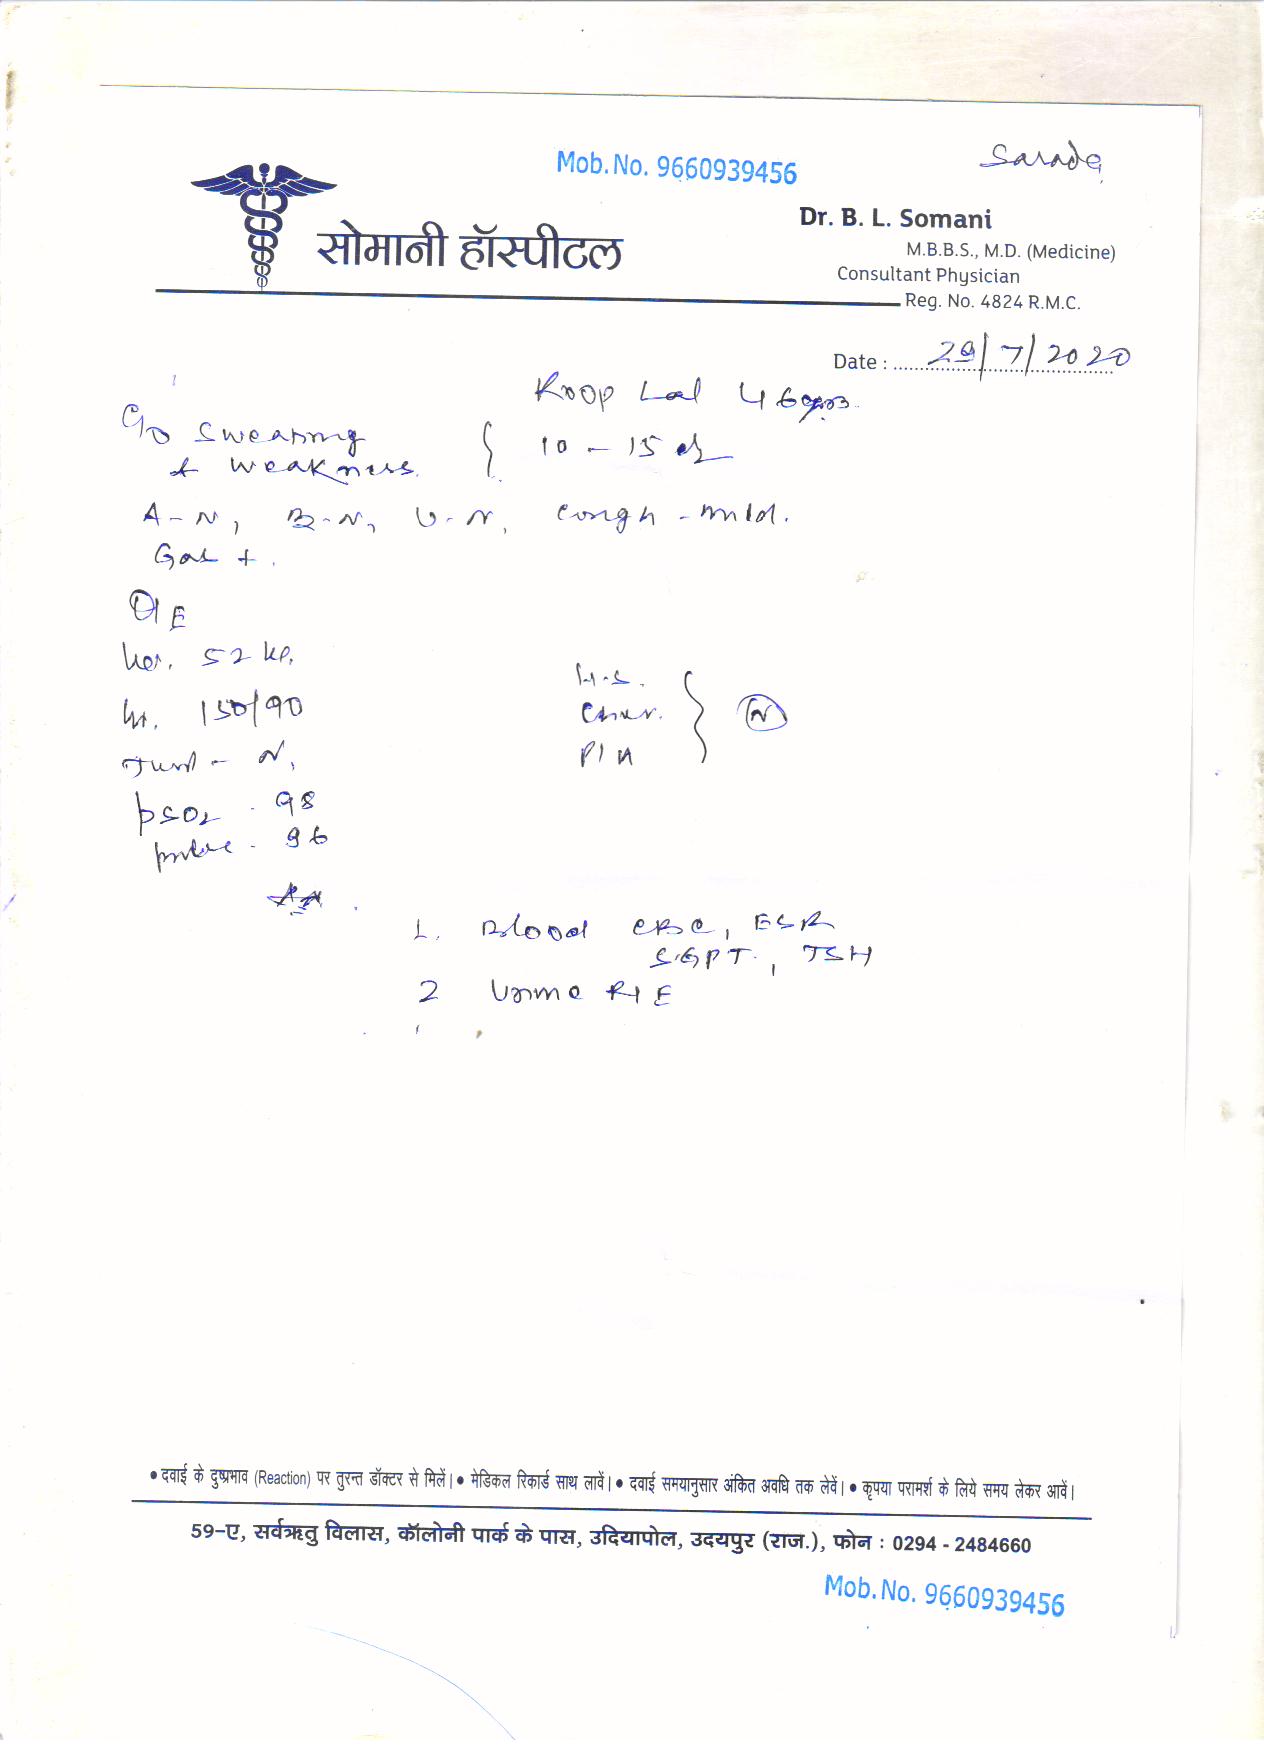 Mob. No. 9660939456
Sarada
सोमानी हॉस्पीटल
Dr. B. L. Somani
M.B.B.S., M.D. (Medicine)
Consultant Physician
Reg. No. 4824 R.M.C.
Date : 29/7/2020
Roop Lal 46yrs.
C/o Sweating
& weakness. } 10 - 15 d
A - N, B - N, U - N, Cough - mild.
Gas +.
O/E
52 kg.
150/90
- N.
PSO2 - 98
pulse - 96
H.S.
P/A
N
1. Blood CBC, ESR
SGPT, TSH
2 Urine R/E
• दवाई के दुष्प्रभाव (Reaction) पर तुरन्त डॉक्टर से मिलें। • मेडिकल रिकार्ड साथ लावें। • दवाई समयानुसार अंकित अवधि तक लेवें। • कृपया परामर्श के लिये समय लेकर आवें।
59-ए, सर्वऋतु विलास, कॉलोनी पार्क के पास, उदियापोल, उदयपुर (राज.), फोन : 0294 - 2484660
Mob. No. 9660939456